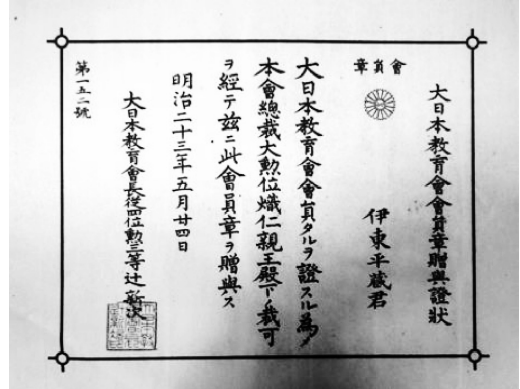 大日本教育會會員章贈與證狀
會員章
伊東平蔵君
大日本教育會會員タルヲ證スル為メ
本會總裁大勲位熾仁親王殿下ノ裁可
ヲ經テ茲ニ此會員章ヲ贈與ス
明治二十三年五月廿四日
大日本教育會長從四位勲三等辻新次
第一五二號